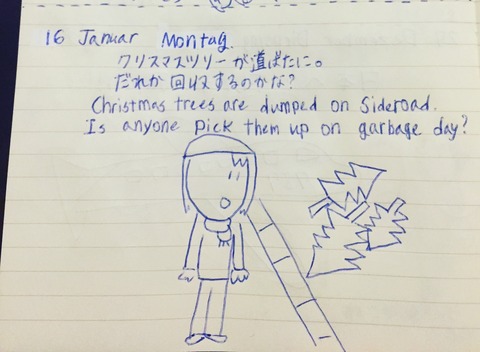 16 Januar Montag.
クリスマスツリーが道ばたに。
だれか回収するのかな?
Christmas trees are dumped on Sideroad.
Is anyone pick them up on garbage day?